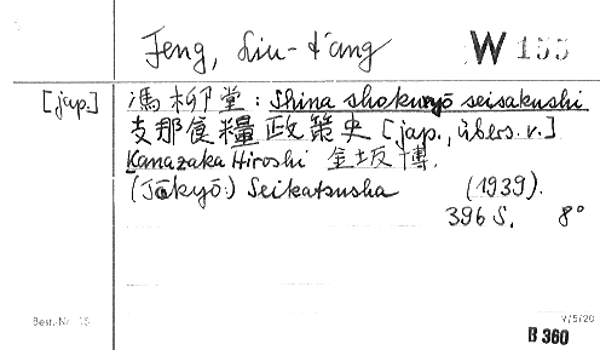 Feng, Liu-t'ang W 155
[jap.] 馮柳堂: Shina shokuryō seisakushi
支那食糧政策史 [jap., übers. v.]
Kanazaka Hiroshi 金坂博.
(Tōkyō:) Seikatsusha (1939).
396 S. 8°
Best.-Nr. 15 V/5/20
B 360